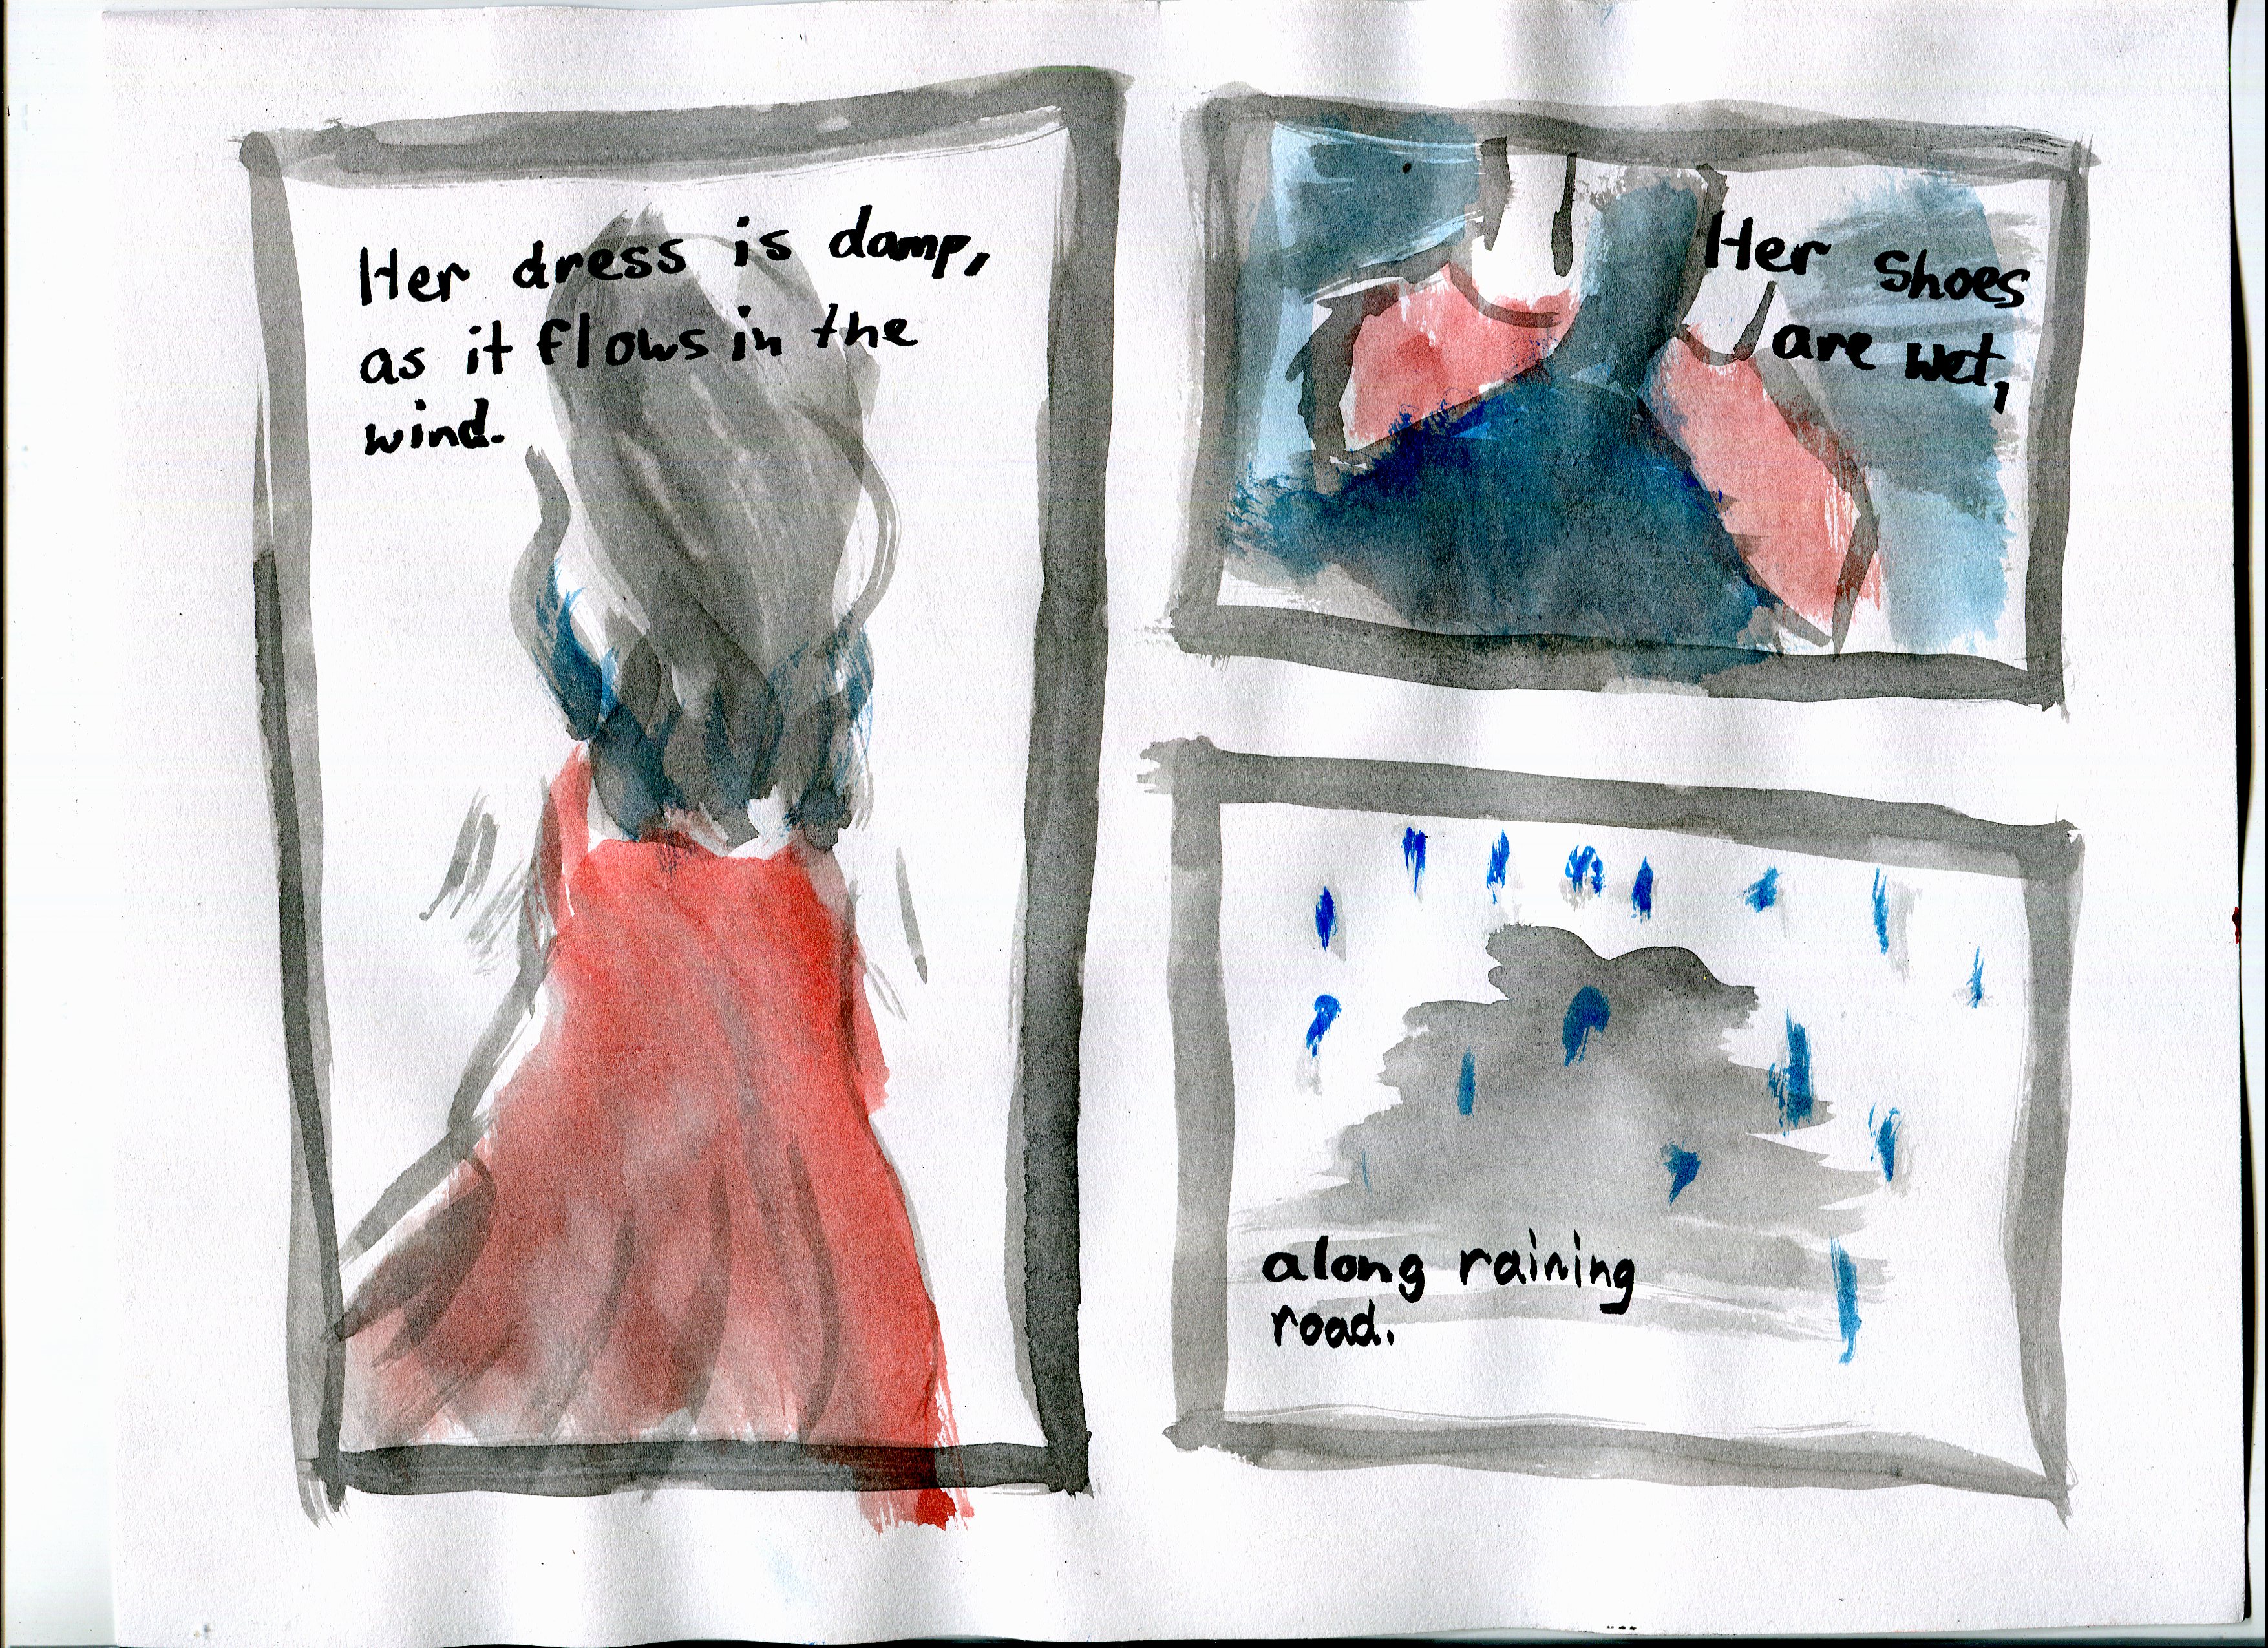 Her dress is damp,
as it flows in the
wind.
Her shoes
are wet,
along raining
road.